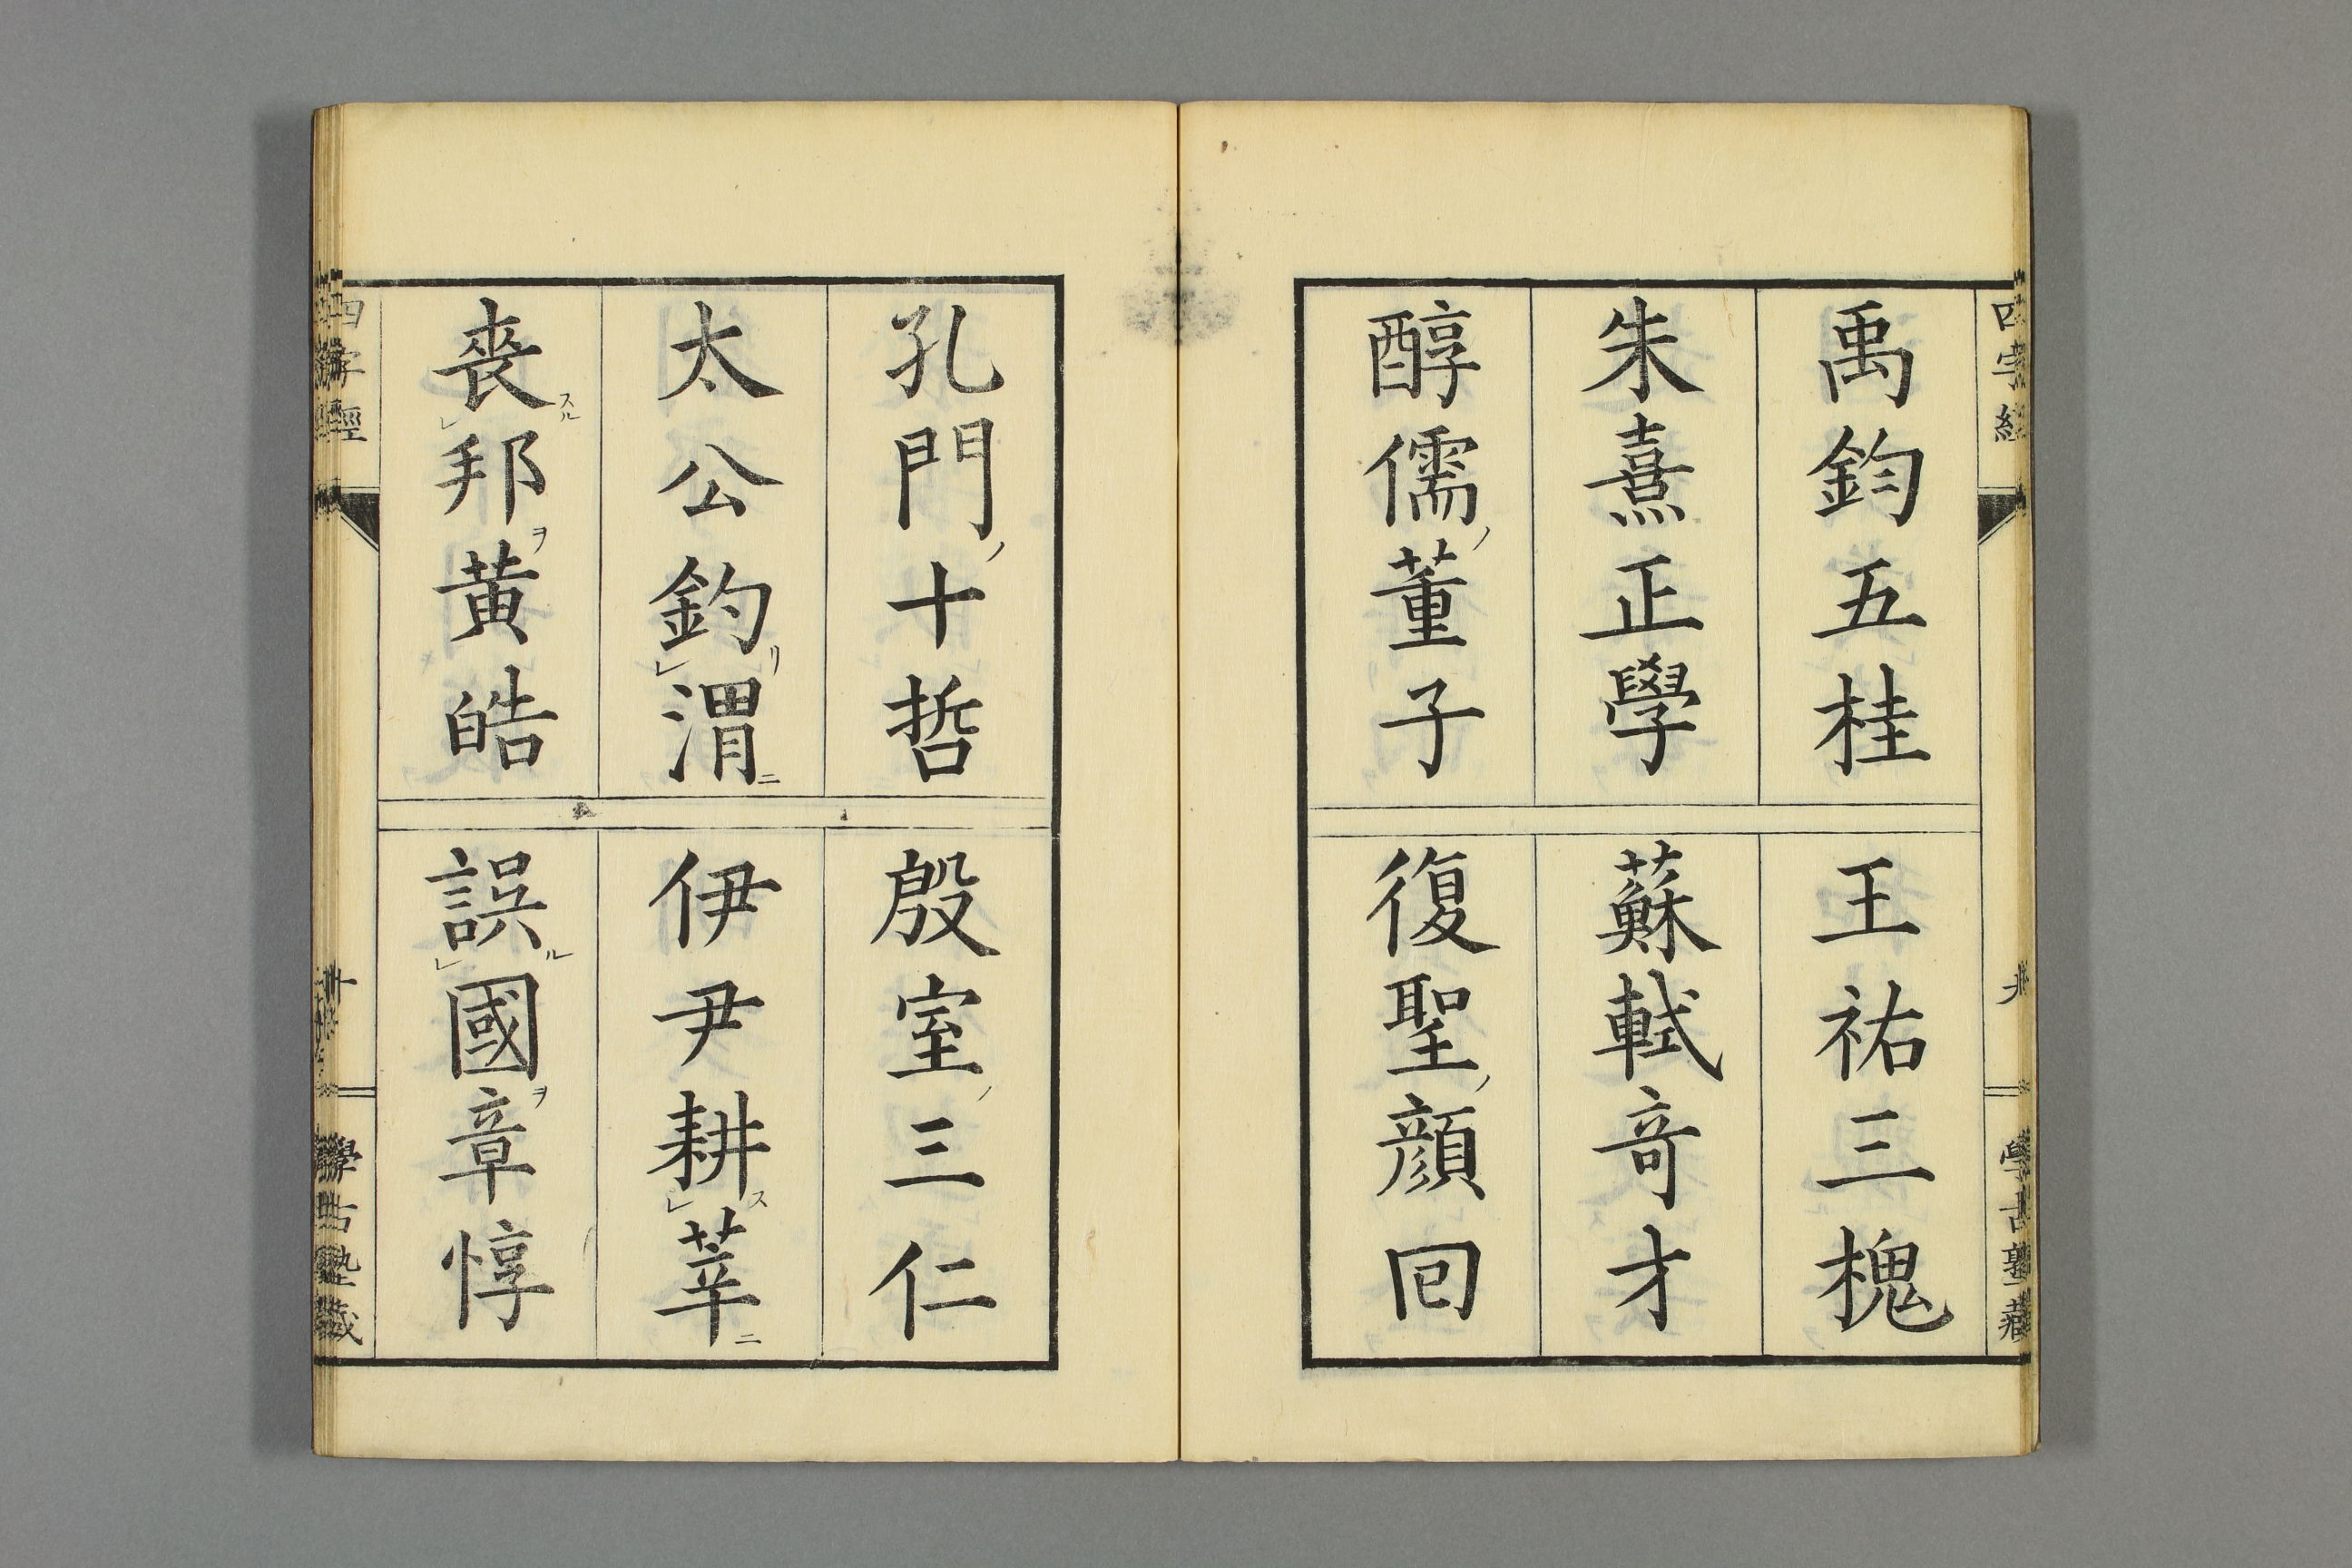 四字經
九
學古塾藏
禹鈞五桂
王祐三槐
朱熹正學
蘇軾竒才
醇儒ノ董子
復聖ノ顔回
孔門ノ十哲
殷室ノ三仁
太公釣リレ渭ニ
伊尹耕スレ莘ニ
喪スルレ邦ヲ黄皓
誤ルレ國ヲ章惇
四字經
十
學古塾藏